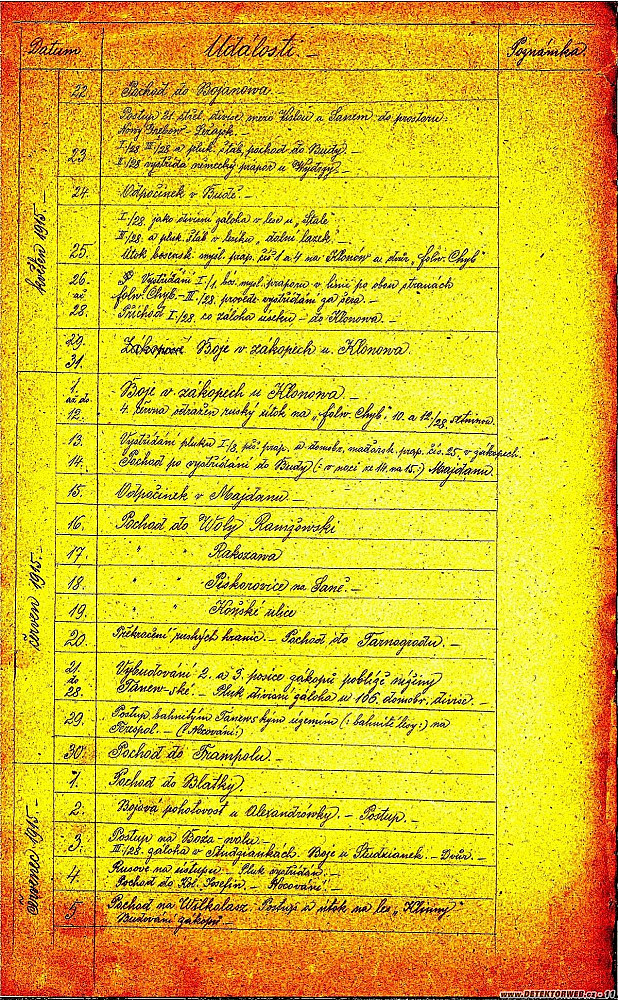 Datum Události Poznámka.
květen 1915 -
22. Pochod do Bojanowa.
Postup 21. střel. divise mezi Wislou a Sanem do prostoru:
Nový Grebow - Ležajsk. -
23 I/28 III/28 a pluk. štáb, pochod do Budy. -
II/28 vystřídá německý prapor u
24. Odpočinek v Budě. -
I./28 jako divisní záloha v lese u
III/28. a pluk. štáb v lesíku „dolní lazek".
25. Útok bosensk. mysl. prap. čís 1 a 4 na Klonów a dvůr „folw. Chyb"
26. Vystřídání I./1. bos. mysl. praporu v linii po obou stranách
až folw. Chyb. - III/28. provede vystřídání za šera. -
28. Příchod I./28 co záloha úseku - do Klonowa. -
29. Boje v zákopech u Klonowa.
31.
červen 1915 -
1. Boje v zákopech u Klonowa. -
až do
12. 4. června odražen ruský útok na „folw. Chyb". 10. a 12./28
13. Vystřídání pluku I/8. pěš. prap. a domobr. maďarsk. prap. čís. 25. v zákopech.
14. Pochod po vystřídání do Budy (: v noci ze 14. na 15.:) Majdanu
15. Odpočinek v Majdanu -
16. Pochod do Woly Ranižowski
17. " " Rakszawa
18. " " Piskorovice na Saně. -
19. " " Koňské ulice
20. Překročení ruských hranic. - Pochod do Tarnogrodu. -
21. Vybudování 2. a 3. posice zákopů poblíže nížiny
do
28. Tanew-ské. - Pluk divisní záloha u 106. domobr. divise. -
29. Postup bahnitým Tanewským územím (: bahnité lesy :) na
30. Pochod do Frampolu. -
červenec 1915 -
1. Pochod do Blatky.
2. Bojová pohotovost u Alexandrówky. - Postup. -
3. Postup na Boża-wolu. -
III/28. záloha v Studziankách. Boje u Studzianek. - Dvůr. -
4. Rusové na ústupu. - Pluk vystřídán. -
Pochod do Kol. Josefin. - Nocování.
5. Pochod na Wilkalasz. Postup a útok na les „Klinny"
Budování zákopů. -
www.DETEKTORWEB.cz